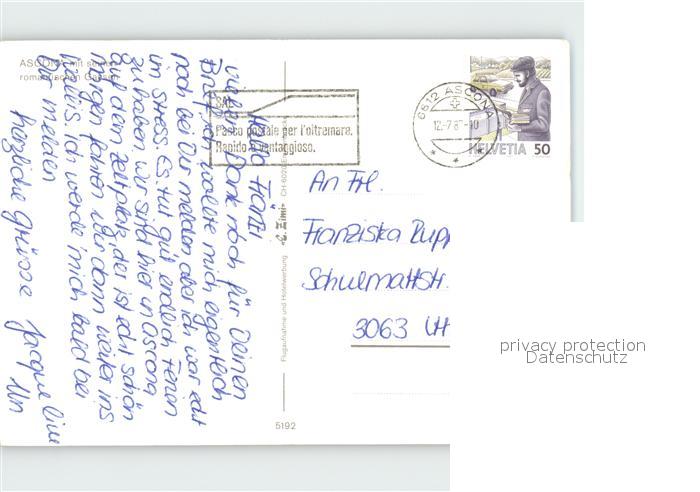 ASCONA mit seinen
romantischen Gassen
Hallo Fränzi
Vielen Dank noch für Deinen
Brief. Ich wollte mich eigentlich
noch bei Dir melden aber ich war echt
im Stress. Es tut gut endlich Ferien
zu haben. Wir sind hier in Ascona
auf dem Zeltplatz, der ist echt schön
Morgen fahren wir dann weiter ins
Wallis. Ich werde mich bald bei
Dir melden
herzliche Grüsse Jacqueline
SAL
Pacco postale per l'oltremare.
Rapido e vantaggioso.
6612 ASCONA
12-7.8
HELVETIA 50
Flugaufnahme und Hotelwerbung
CH-6020
An Frl.
Franziska Rupp
Schulmattstr.
3063
5192
privacy protection
Datenschutz